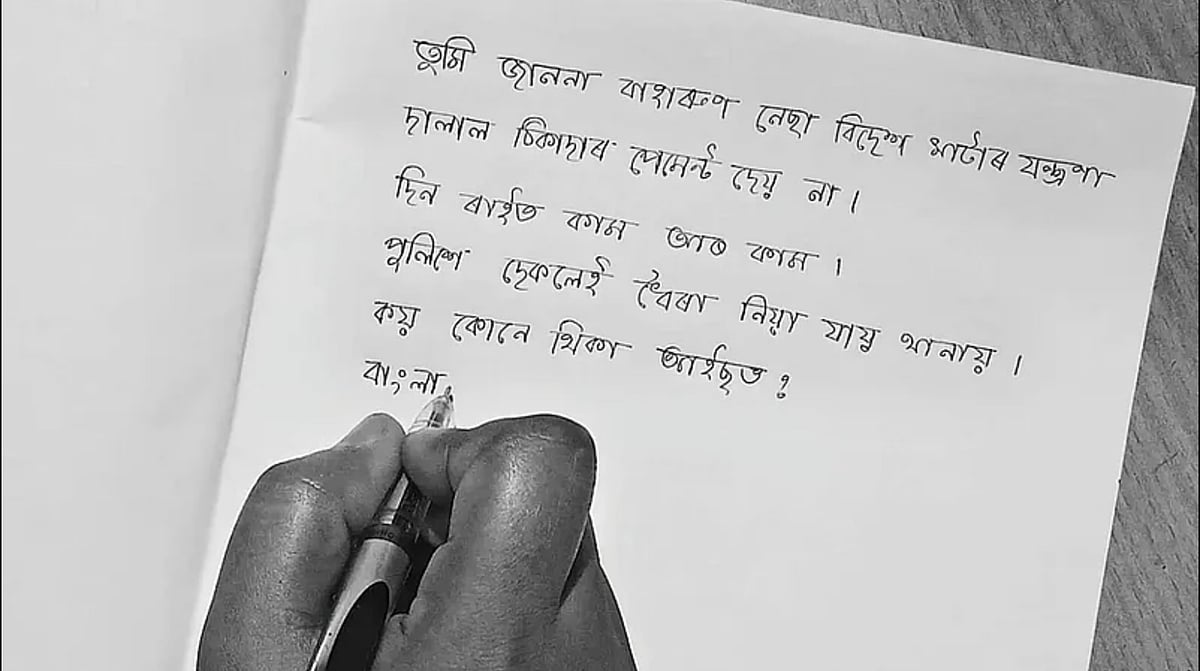 তুমি জাননা বাহাৰুণ নেছা বিদেশ মাটাৰ যন্ত্ৰণা
দালাল ঠিকাদাৰ পেমেন্ট দেয় না।
দিন ৰাইত কাম আৰ কাম।
পুলিশে দেকলেই ধৈৰা নিয়া যায় থানায়।
কয় কোনে থিকা আইছত?
বাংলা